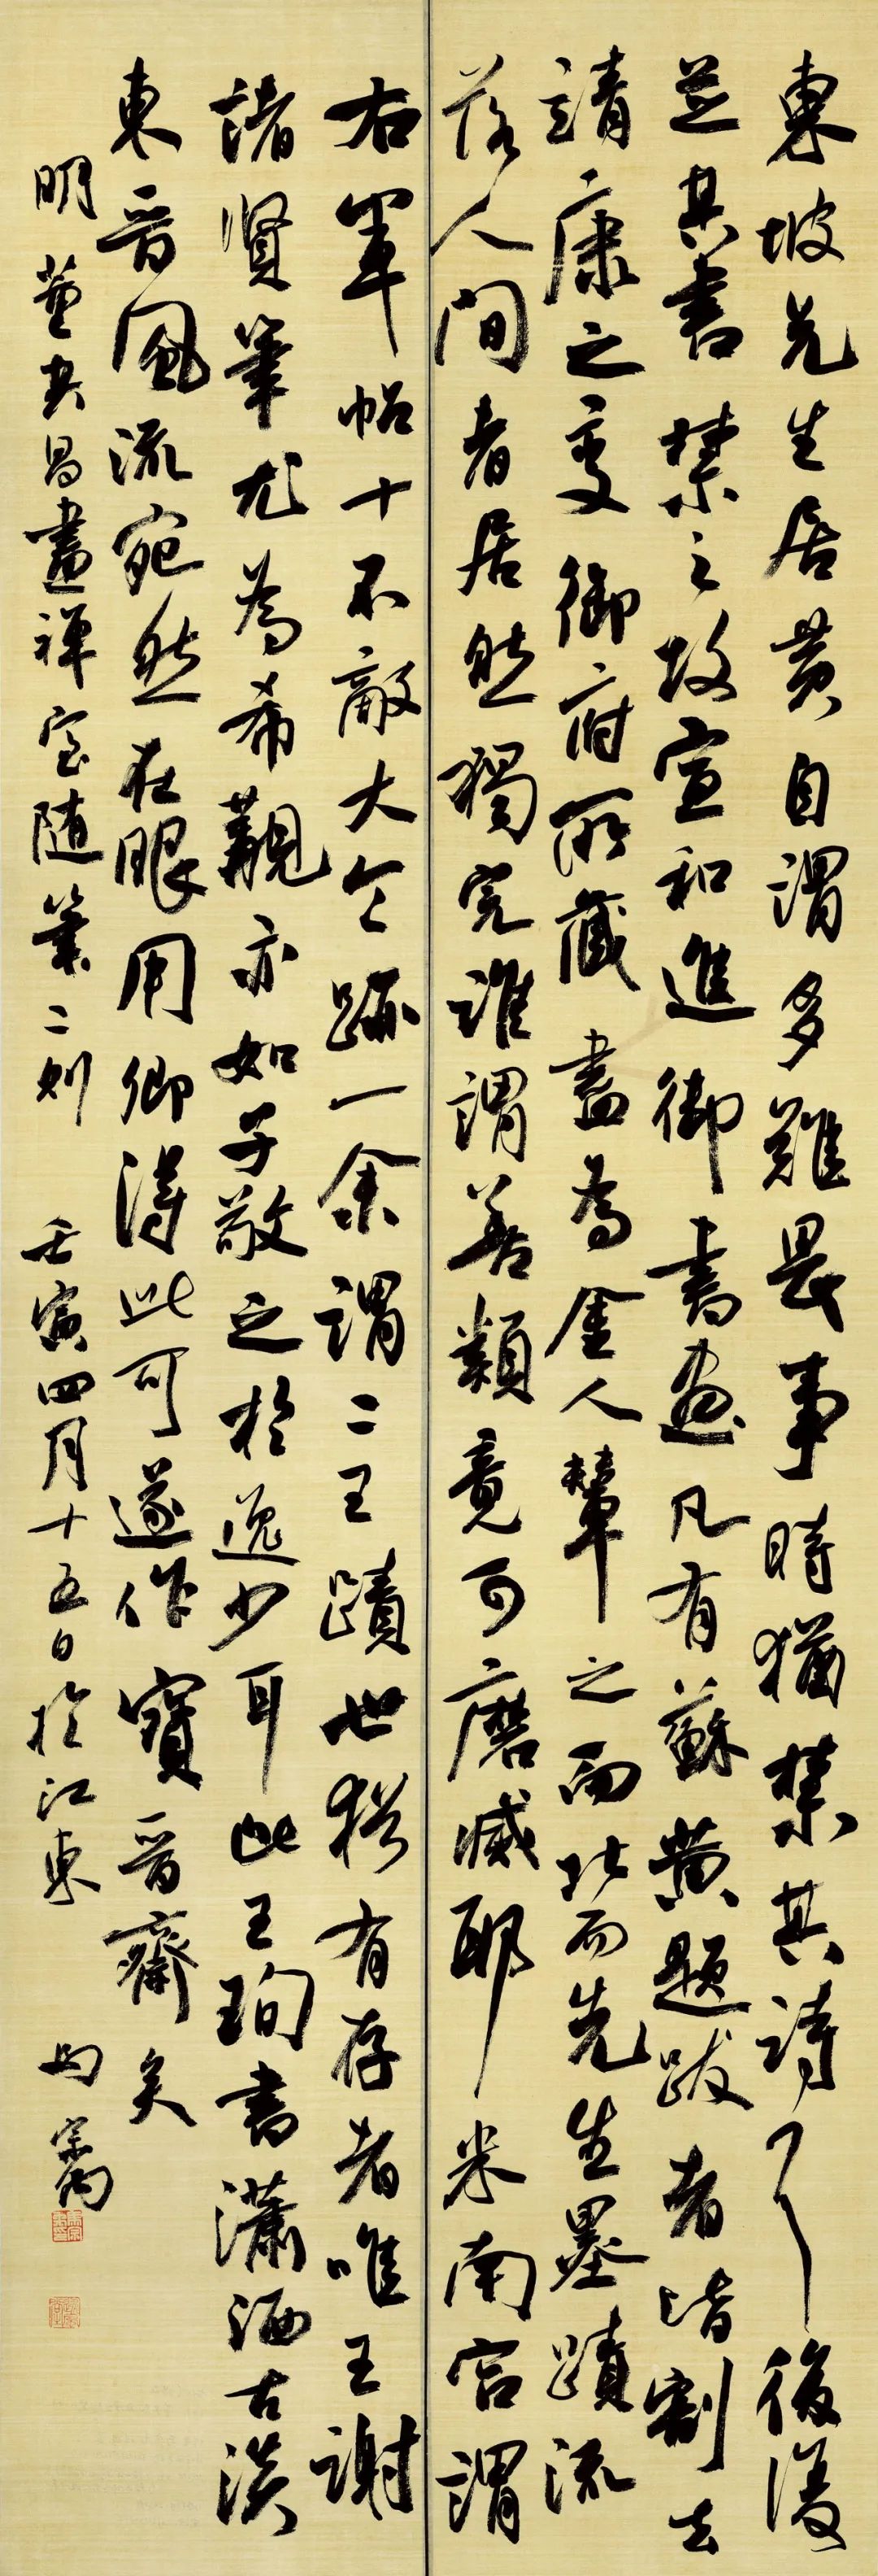 東坡先生居黄自謂多難畏事時猶禁其詩了後復
並其書禁之故宣和進御書画凡有蘇黄題跋者皆割去
靖康之變御府所藏盡為金人輦之而北而先生墨蹟流
落人間者居然獨完誰謂善類竟可磨滅耶米南宫謂
右軍帖十不敵大令跡一余謂二王蹟世猶有存者唯王謝
諸賢筆尤為希覯亦如子敬之於逸少耳此王珣書瀟洒古淡
東晋風流宛然在眼用卿得此可遂作寶晋齋矣
明董其昌畫禅室随筆二則 壬寅四月十五日於江東